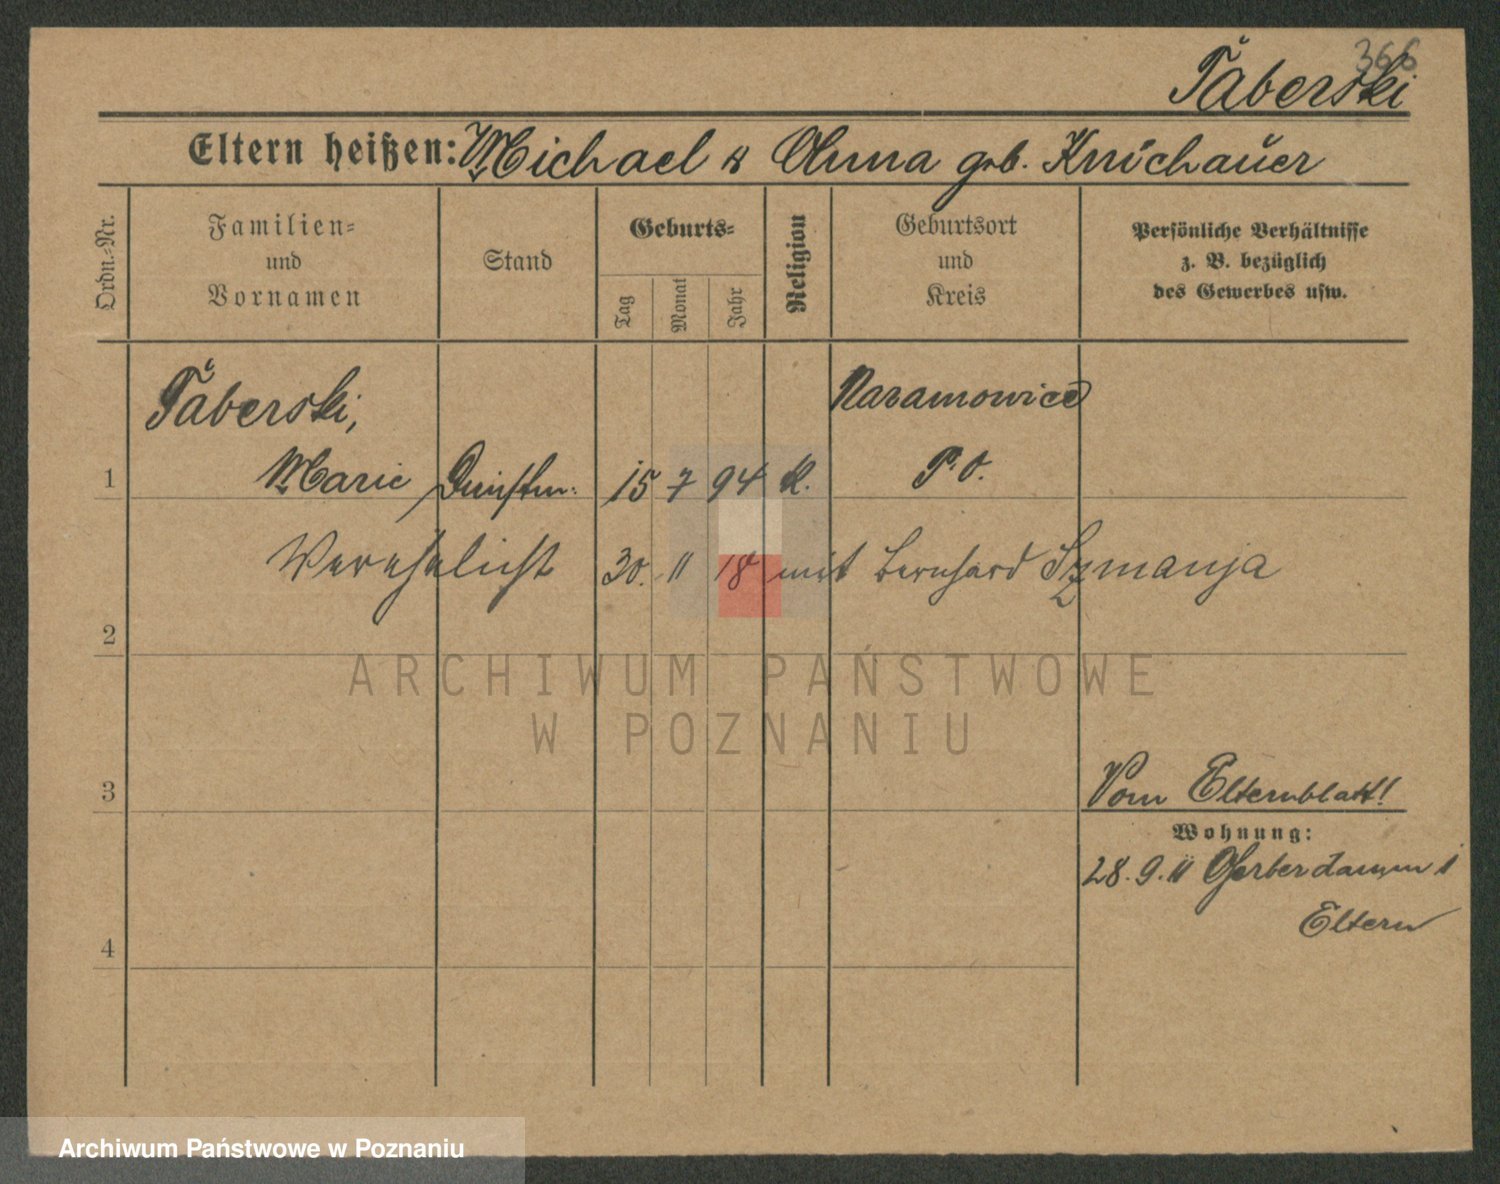 366
Taberski
Eltern heißen: Michael & Anna geb. Knichauer
Ordn.-Nr.
Familien-
und
Vornamen
Stand
Geburts-
Tag
Monat
Jahr
Religion
Geburtsort
und
Kreis
Persönliche Verhältnisse
z. B. bezüglich
des Gewerbes usw.
Taberski,
Naramowice
1 Marie Dienstm. 15 7 94 k. P. O.
Verehelicht 30. 11 18 mit Bernhard Szmanja
2
ARCHIWUM PAŃSTWOWE
W POZNANIU
3
Vom Elternblatt!
Wohnung:
28. 9. 11 Gerberdamm 1
Eltern
4
Archiwum Państwowe w Poznaniu